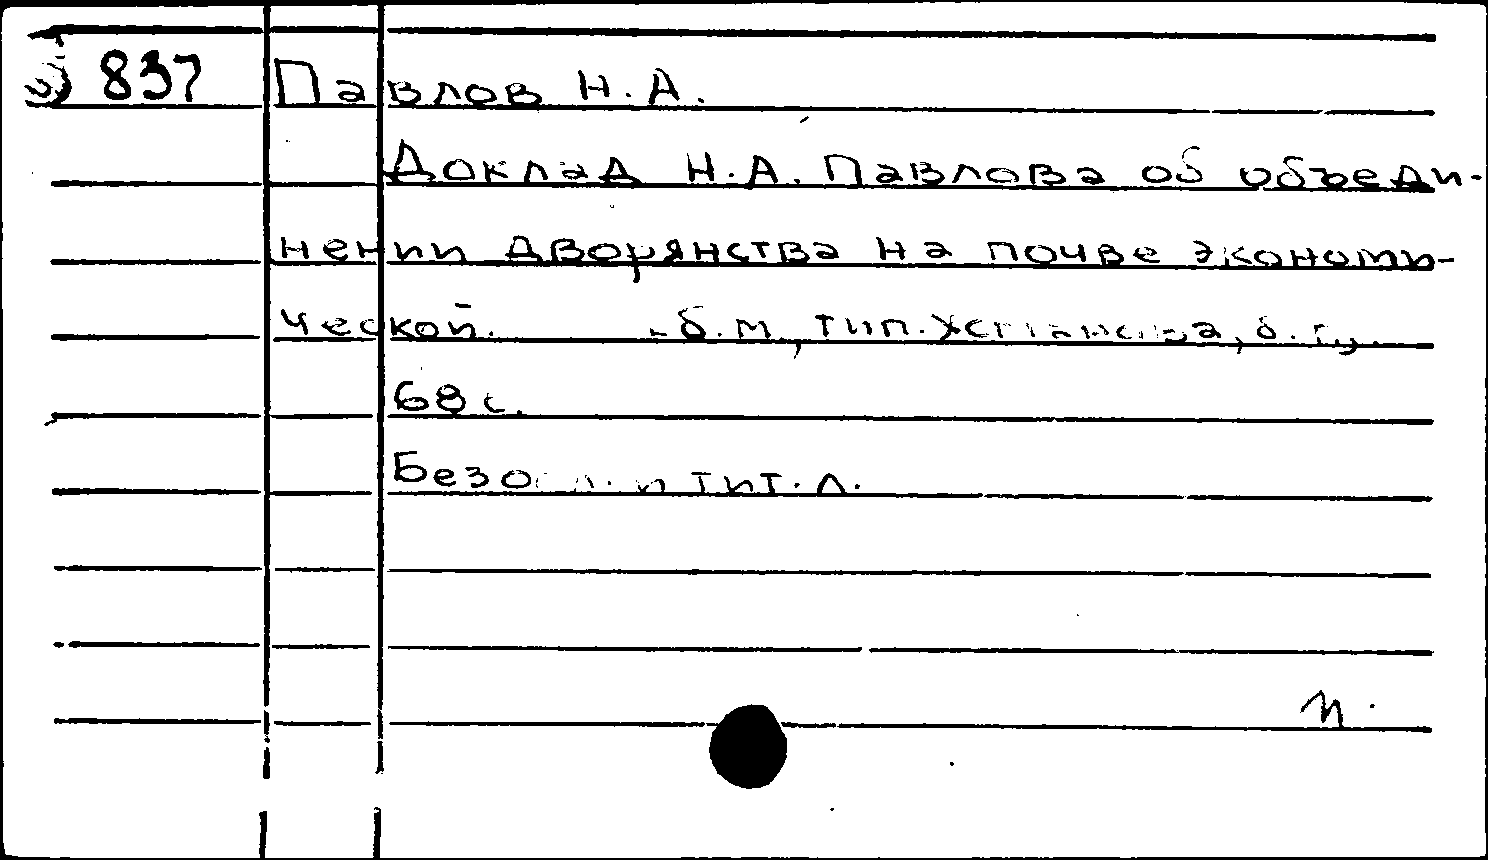 837 Павлов Н.А.
Доклад Н.А. Павлова об объеди-
нении дворянства на почве экономи-
ческой. - б.м., тип. б. г.,
68 с.
Без обл. и тит. л.